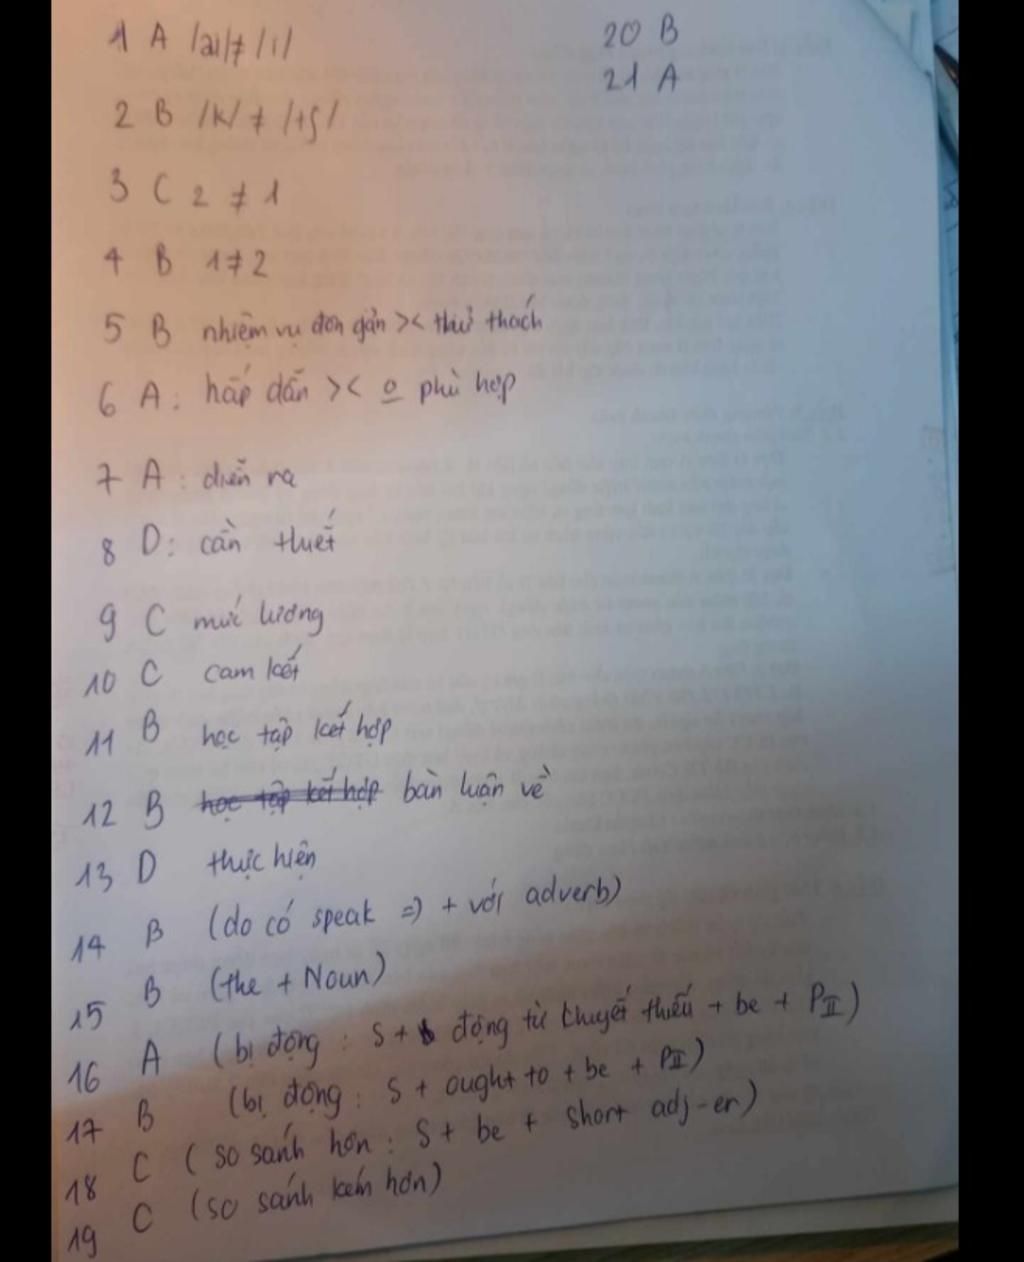 1 A /ai/ ≠ /i/
2 B /k/ ≠ /tʃ/
3 C 2 ≠ 1
4 B 1 ≠ 2
5 B nhiệm vụ đơn gản >< thử thách
6 A: hấp dẫn >< o phù hợp
7 A: diễn ra
8 D: cần thiết
9 C mức lương
10 C cam kết
11 B học tập kết hợp
12 B học tập kết hợp bàn luận về
13 D thực hiện
14 B (do có speak => + với adverb)
15 B (the + Noun)
16 A (bị động: S + động từ khuyết thiếu + be + PII)
17 B (bị động: S + ought to + be + PII)
18 C (so sánh hơn: S + be + short adj-er)
19 C (so sánh kém hơn)
20 B
21 A